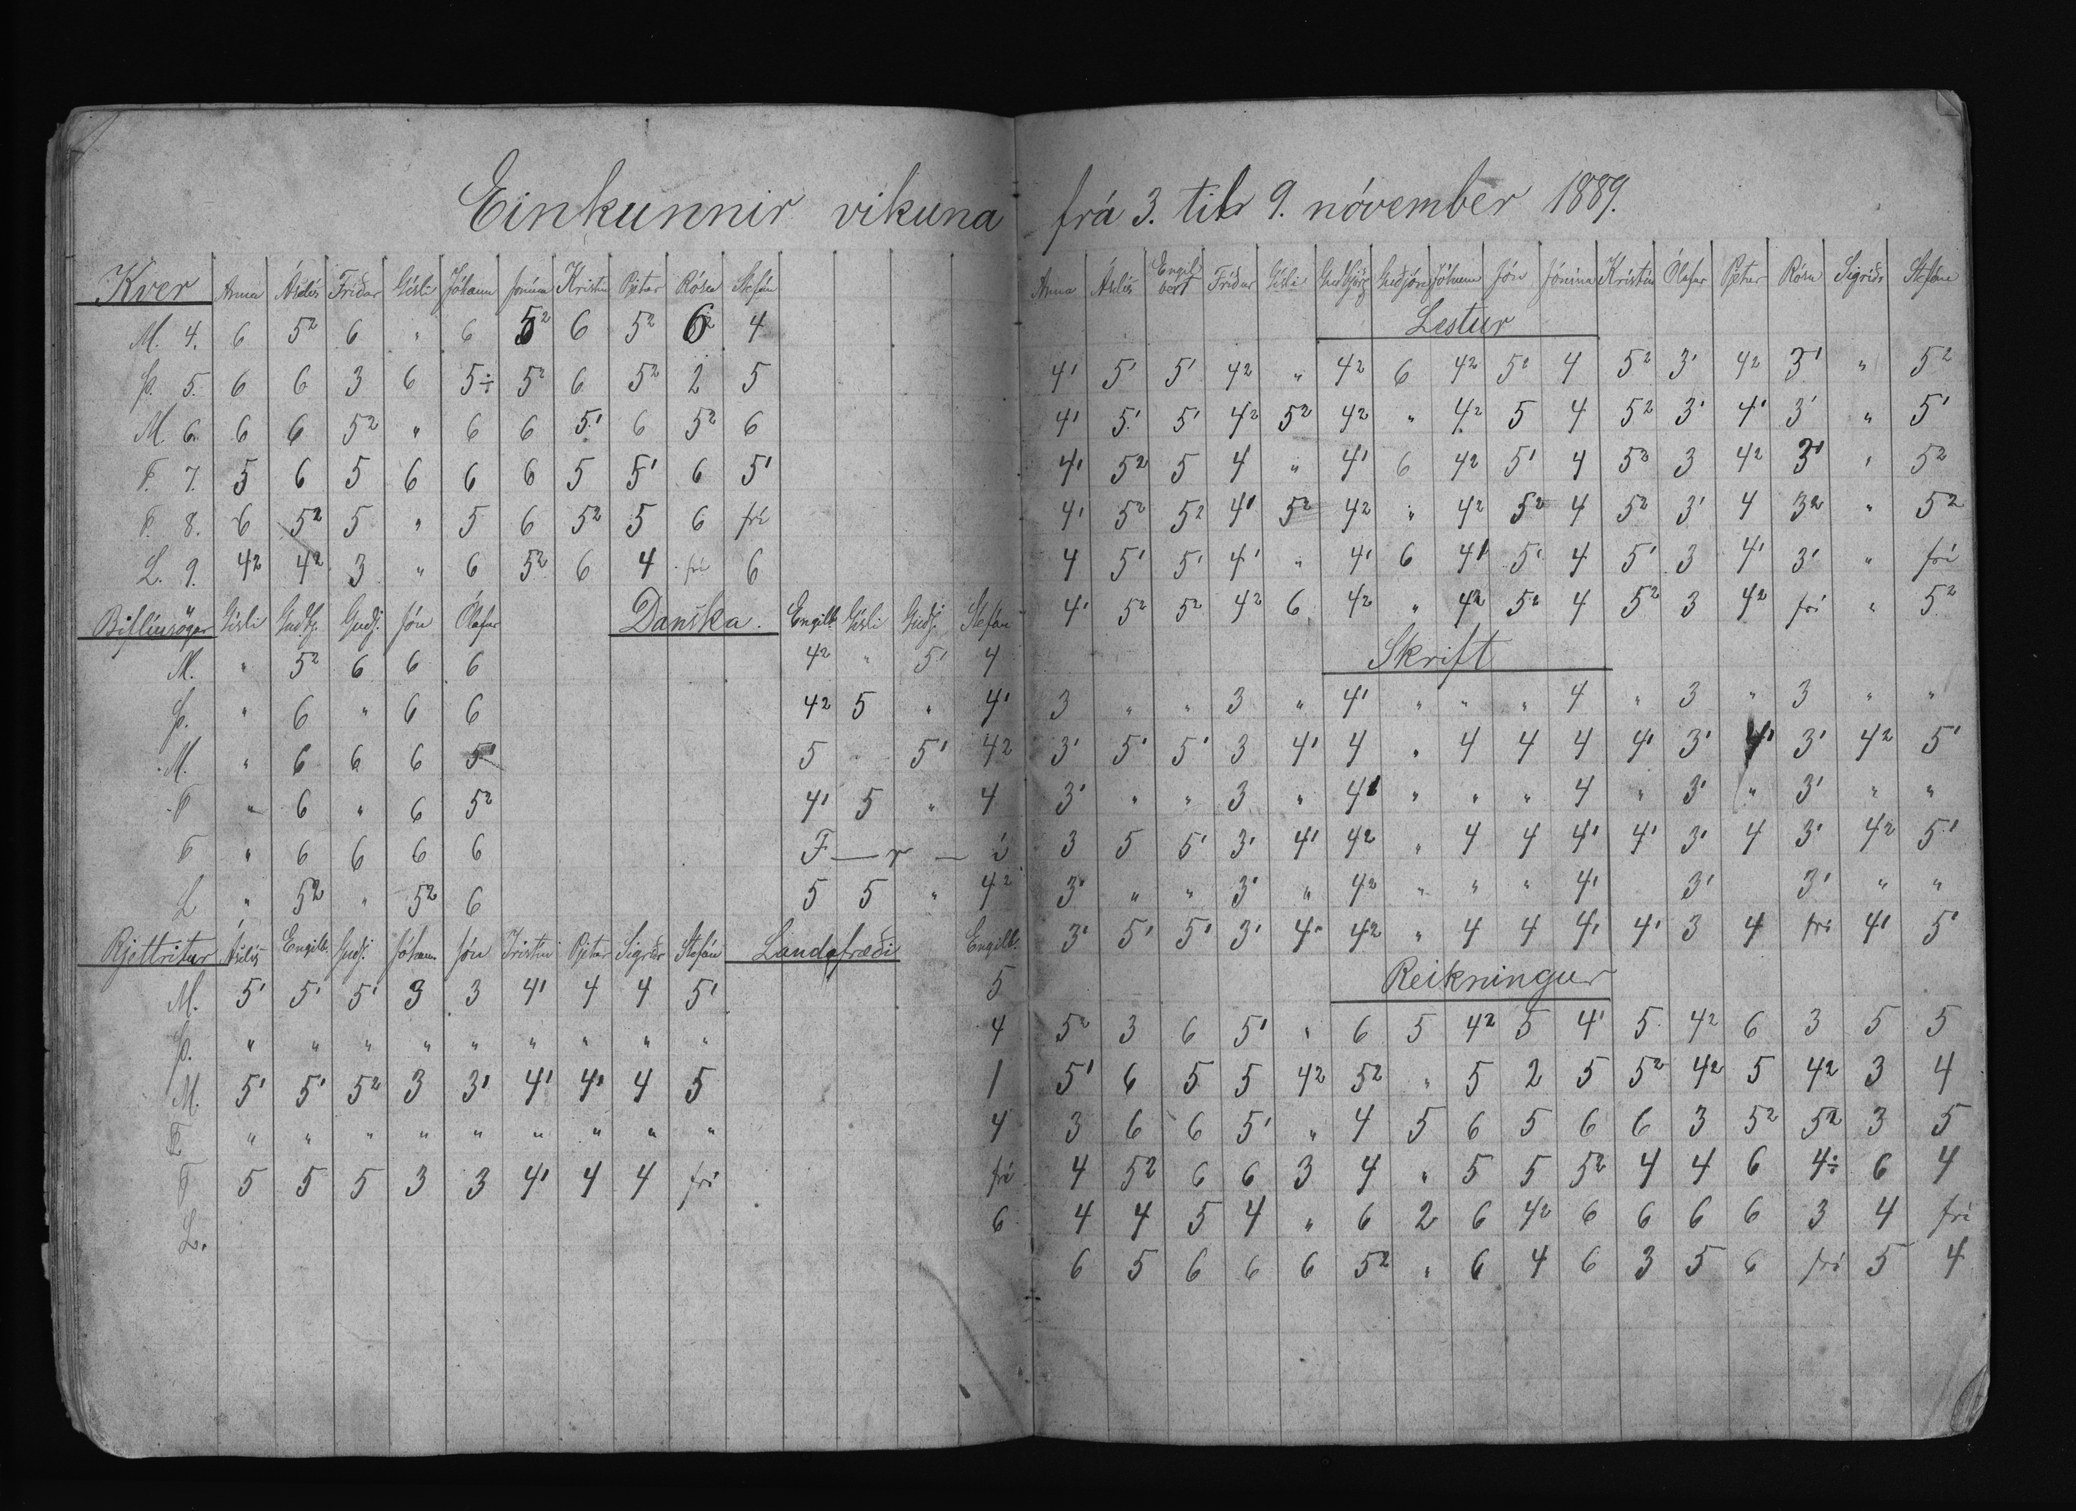 Einkunnir vikuna frá 3. til 9. nóvember 1889.
Kver Anna Áslís Friðar Gísli Jóhann Jónína Kristín Pjetur Rósa Stefán
M. 4. 6 5² 6 " 6 5² 6 5² 6² 4
Þ. 5. 6 6 3 6 5÷ 5² 6 5² 2 5
M. 6. 6 6 5² " 6 6 5¹ 6 5² 6
F. 7. 5 6 5 6 6 6 5 5¹ 6 5¹
F. 8. 6 5² 5 " 5 6 5² 5 6 frí
L. 9. 4² 4² 3 " 6 5² 6 4 frí 6
Biflíusögur Gísli Guðbj. Guðj. Jón Ólafur Danska. Engilb. Gísli Guðj. Stefán
M. " 5² 6 6 6 4² " 5¹ 4
Þ. " 6 " 6 6 4² 5 " 4¹
M. " 6 6 6 5¹ 5 " 5¹ 4²
F " 6 " 6 5² 4¹ 5 " 4
F " 6 6 6 6 F — r — í
L " 5² " 5² 6 5 5 " 4²
Rjettritun Áslís Engilb. Guðj. Jóhann Jón Kristín Pjetur Sigríðr Stefán Landafræði Engilb.
M. 5¹ 5¹ 5¹ 3 3 4¹ 4 4 5¹ 5
Þ. " " " " " " " " " 4
M. 5¹ 5¹ 5² 3 3¹ 4¹ 4¹ 4 5 1
F. " " " " " " " " " 4
F 5 5 5 3 3 4¹ 4 4 frí frí
L. 6
Anna Áslís Engilbert Friðar Gísli Guðbjörg Guðjón Jóhann Jón Jónína Kristín Ólafur Pjetur Rósa Sigríðr Stefán
Lestur
4¹ 5¹ 5¹ 4² " 4² 6 4² 5² 4 5² 3¹ 4² 3¹ " 5²
4¹ 5¹ 5¹ 4² 5² 4² " 4² 5 4 5² 3¹ 4¹ 3¹ " 5¹
4¹ 5² 5 4 " 4¹ 6 4² 5¹ 4 5² 3 4² 3¹ " 5²
4¹ 5² 5² 4¹ 5² 4² " 4² 5² 4 5² 3¹ 4 3² " 5²
4 5¹ 5¹ 4¹ " 4¹ 6 4¹ 5¹ 4 5¹ 3 4¹ 3¹ " frí
4¹ 5² 5² 4² 6 4² " 4² 5² 4 5² 3 4² frí " 5²
Skrift
3 " " 3 " 4¹ " " " 4 " 3 " 3 " "
3¹ 5¹ 5¹ 3 4¹ 4 " 4 4 4 4¹ 3¹ 4¹ 3¹ 4² 5¹
3¹ " " 3 " 4¹ " " " 4 " 3¹ " 3¹ " "
3 5 5¹ 3¹ 4¹ 4² " 4 4 4¹ 4¹ 3¹ 4 3¹ 4² 5¹
3¹ " " 3¹ " 4² " " " 4¹ 3¹ 3¹ " "
3¹ 5¹ 5¹ 3¹ 4¹ 4² " 4 4 4¹ 4¹ 3 4 frí 4¹ 5¹
Reikningur
5² 3 6 5¹ " 6 5 4² 5 4¹ 5 4² 6 3 5 5
5¹ 6 5 5 4² 5² " 5 2 5 5² 4² 5 4² 3 4
3 6 6 5¹ " 4 5 6 5 6 6 3 5² 5² 3 5
4 5² 6 6 3 4 " 5 5 5² 4 4 6 4÷ 6 4
4 4 5 4 " 6 2 6 4² 6 6 6 6 3 4 frí
6 5 6 6 6 5² " 6 4 6 3 5 6 frí 5 4